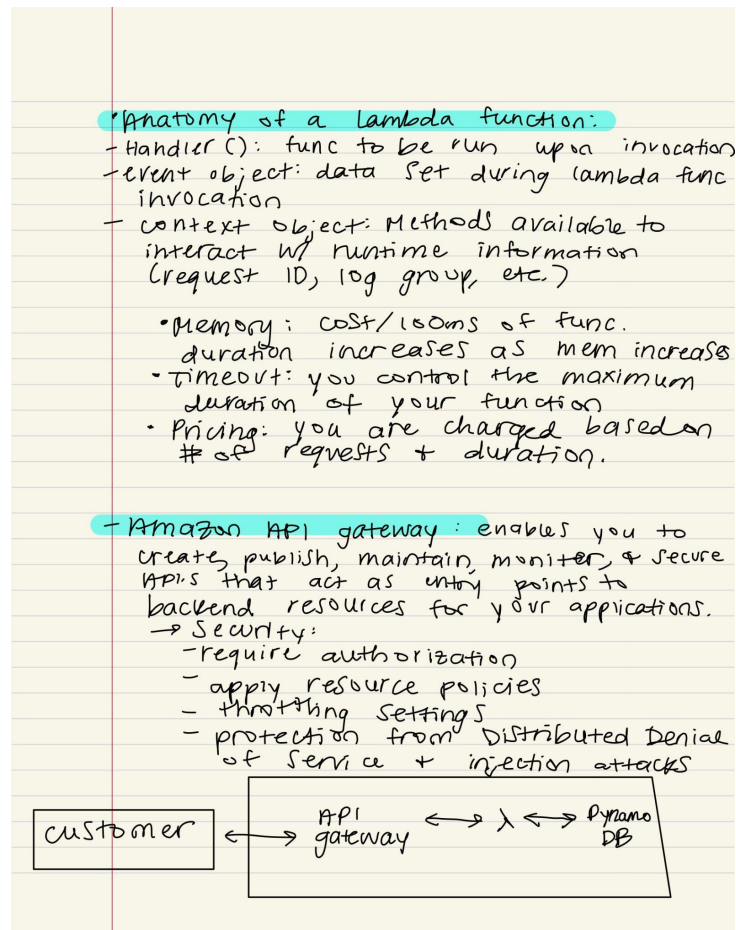 • Anatomy of a Lambda function:
- Handler(): func to be run upon invocation
- event object: data set during lambda func
invocation
- context object: Methods available to
interact w/ runtime information
(request ID, log group, etc.)
• Memory: cost/100ms of func.
duration increases as mem increases
• Timeout: you control the maximum
duration of your function
• Pricing: you are charged based on
# of requests + duration.
- Amazon API gateway: enables you to
create, publish, maintain, moniter, & secure
API's that act as entry points to
backend resources for your applications.
→ Security:
- require authorization
- apply resource policies
- throttling settings
- protection from Distributed Denial
of Service + injection attacks
customer ↔ API gateway ↔ λ ↔ Dynamo DB